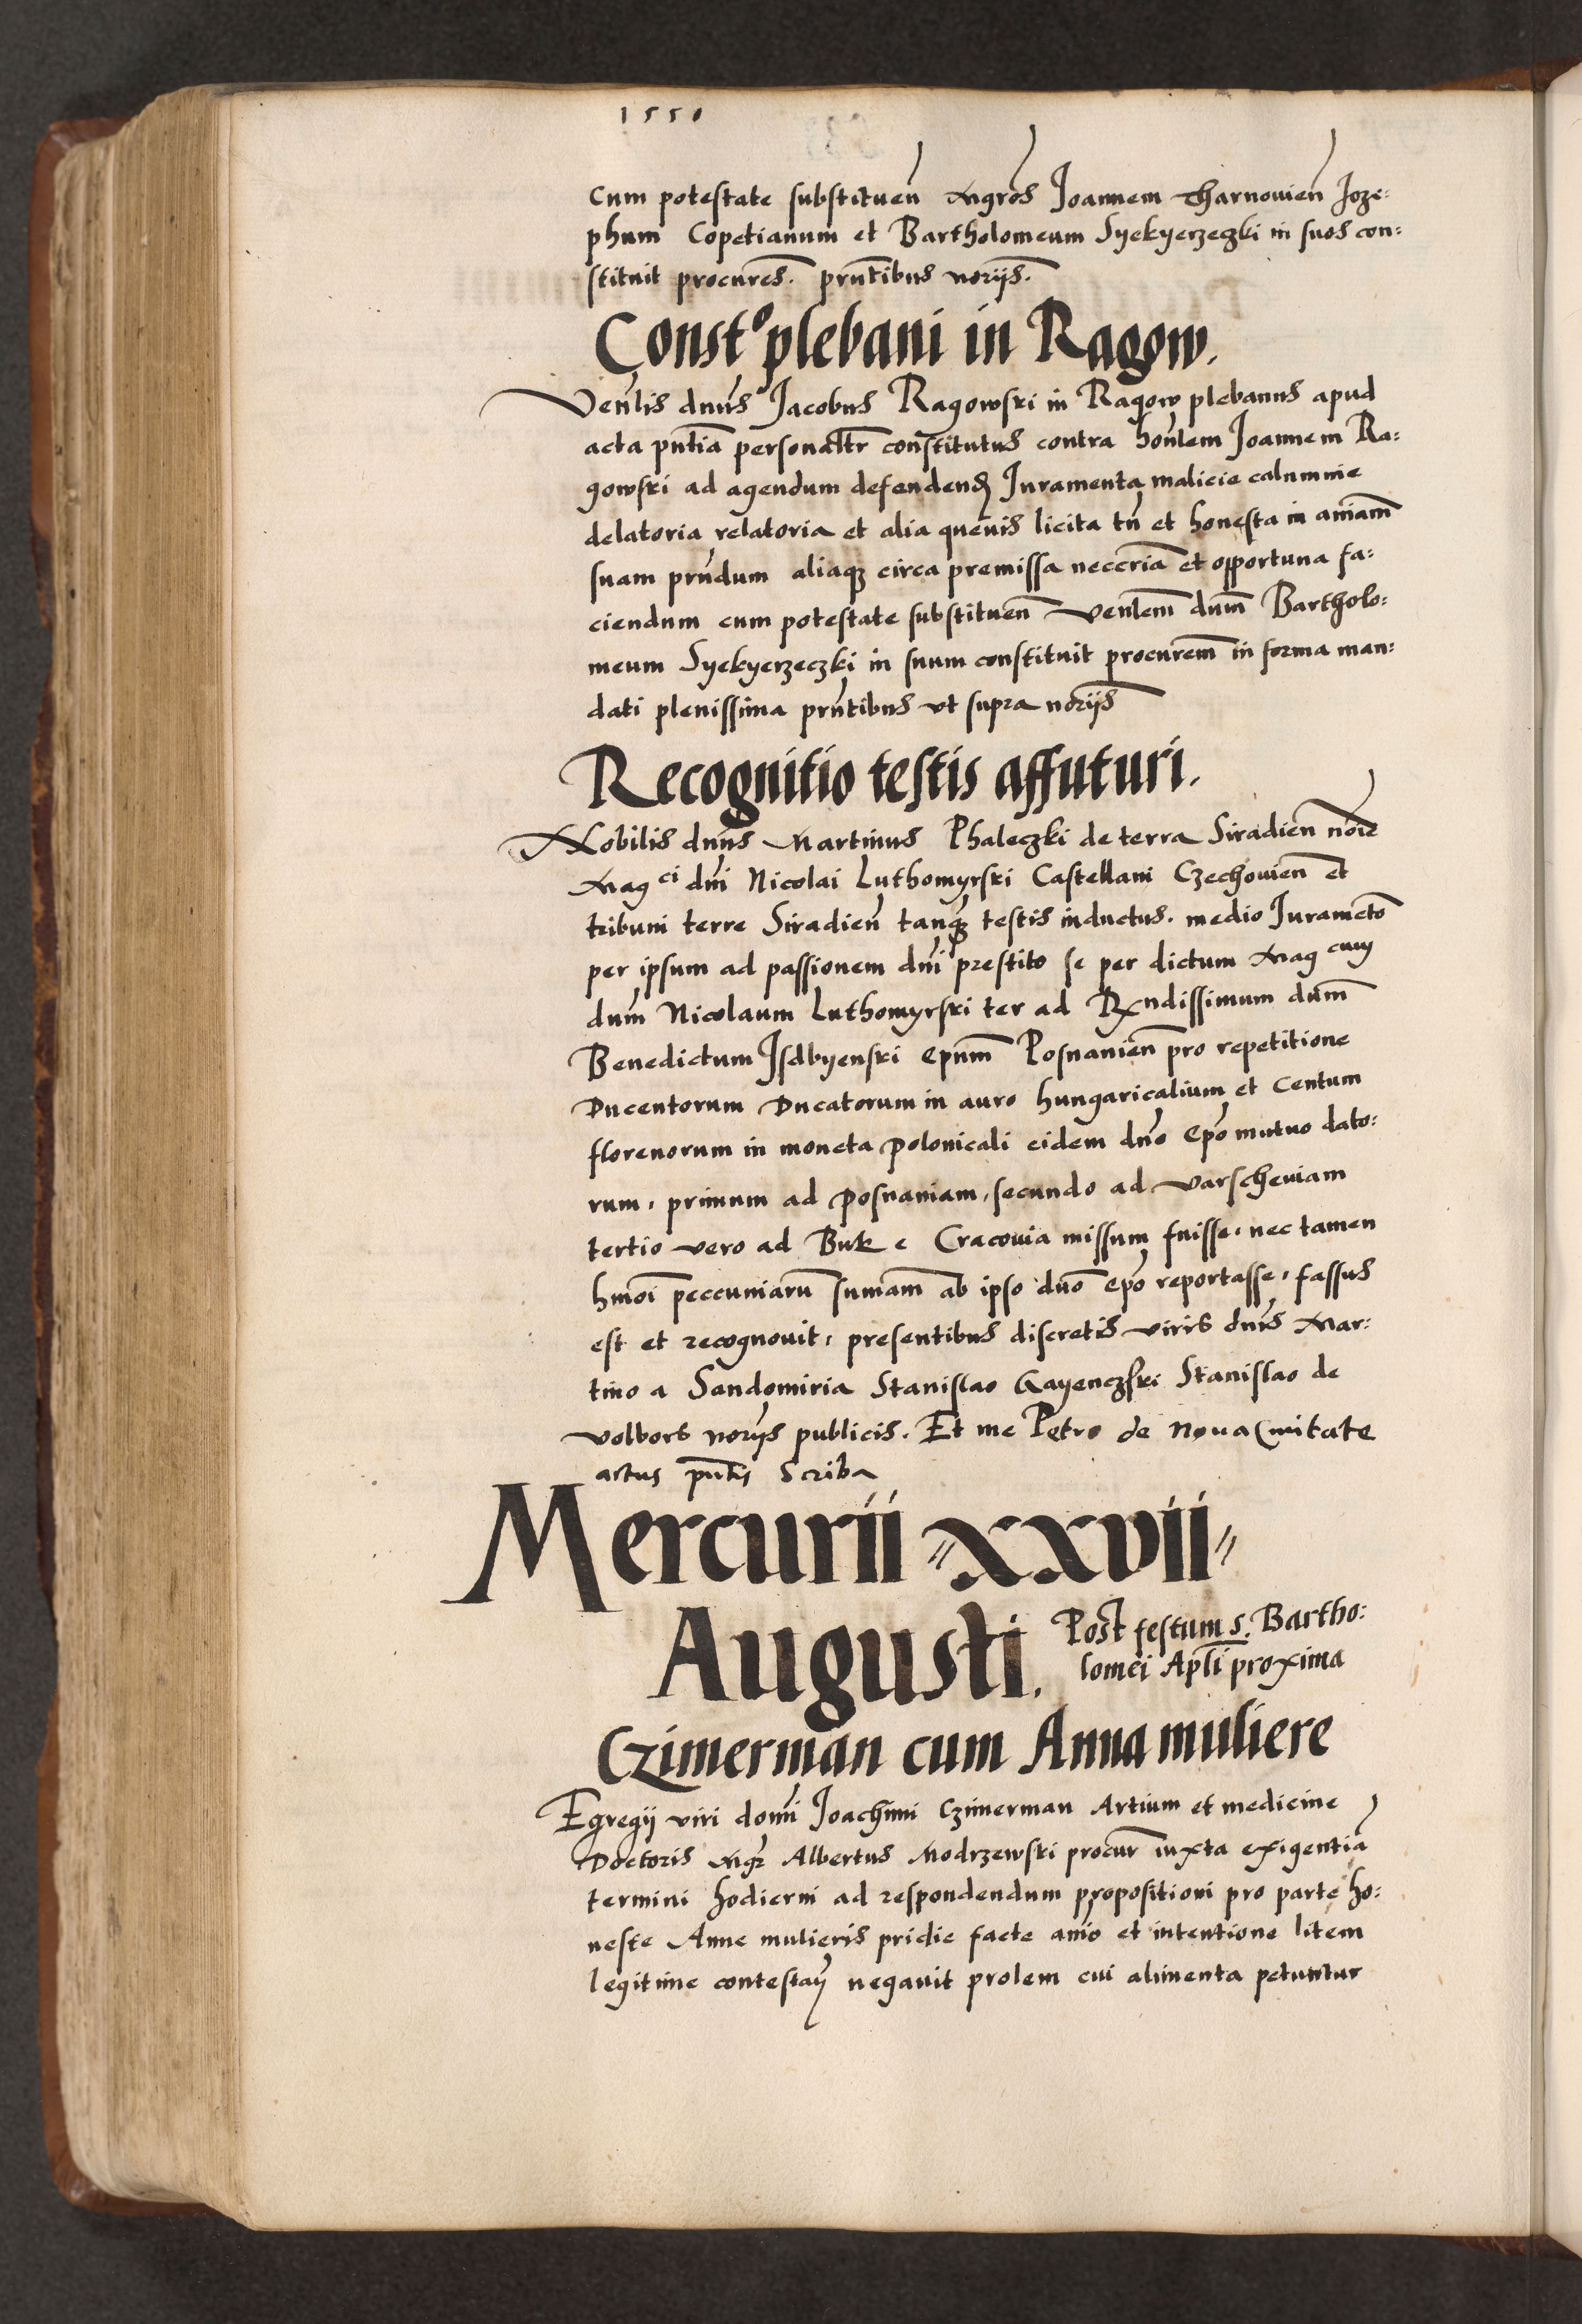 1550
cum potestate substituen̄ Mgros̄ Joannem Tharnouien̄ Joze:
phum Copetianum et Bartholomeum Syekyerzeczki in suos con:
stituit procures̄. pn̄tibus norijs̄.
Constᵒ plebani in Ragow.
Venlis̄ dnus̄ Jacobus Ragowski in Ragow plebanus apud
acta pn̄tia personaltr̄ constitutus contra hon̄tem Joannem Ra:
gowski ad agendum defendend̄ Juramenta malicie calumnie
delatoria relatoria et alia queuis licita tn̄ et honesta in aniam̄
suam prn̄dum aliaqȝ circa premissa neccria̅ et opportuna fa:
ciendum cum potestate substituen̄ Venlem̄ dum̄ Bartholo:
meum Syekyerzeczki in suum constituit procurem̄ in forma man:
dati plenissima prn̄tibus vt supra norijs̄
Recognitio testis affuturi.
Nobilis dnus̄ Martinus Phaleczki de terra Siradien̄ noīe
Magci dnī Nicolai Luthomyrski Castellani Czechouien̄ et
tribuni terre Siradien̄ tanqȝ testis inductus. medio Juramēto
per ipsum ad passionem dnī prestito se per dictum Magcum
dum̄ Nicolaum Luthomyrski ter ad Rxndissimum dum̄
Benedictum Jsdbyenski epum̄ Posnanien̄ pro repetitione
Ducentorum Ducatorum in auro hungaricalium et Centum
florenorum in moneta polonicali eidem dnō epō mutuo dato:
rum, primum ad posnaniam, secundo ad varscheuiam
tertio vero ad Buk e Cracouia missum fuisse, nec tamen
hmōi peccuniarū sumam̄ ab ipso dnō epō reportasse, fassus
est et recognouit, presentibus discretis viris dnis̄ Mar:
tino a Sandomiria Stanislao Gayenczski Stanislao de
volbors norijs̄ publicis. Et me Petro de Noua Ciuitate
actus pn̄tis scriba
Mercurii xxvii
Augusti. Post festum s. Bartho:
lomei Apli̅ proxima
Czimerman cum Anna muliere
Egregij viri domī Joachimi Czimerman Artium et medicine
Doctoris Mgr̄ Albertus Modrzewski procur̄ iuxta exigentiā
termini hodierni ad respondendum propositioni pro parte ho:
neste Anne mulieris pridie facte aniō et intentione litem
legitime contestan̄ negauit prolem cui alimenta petuntur